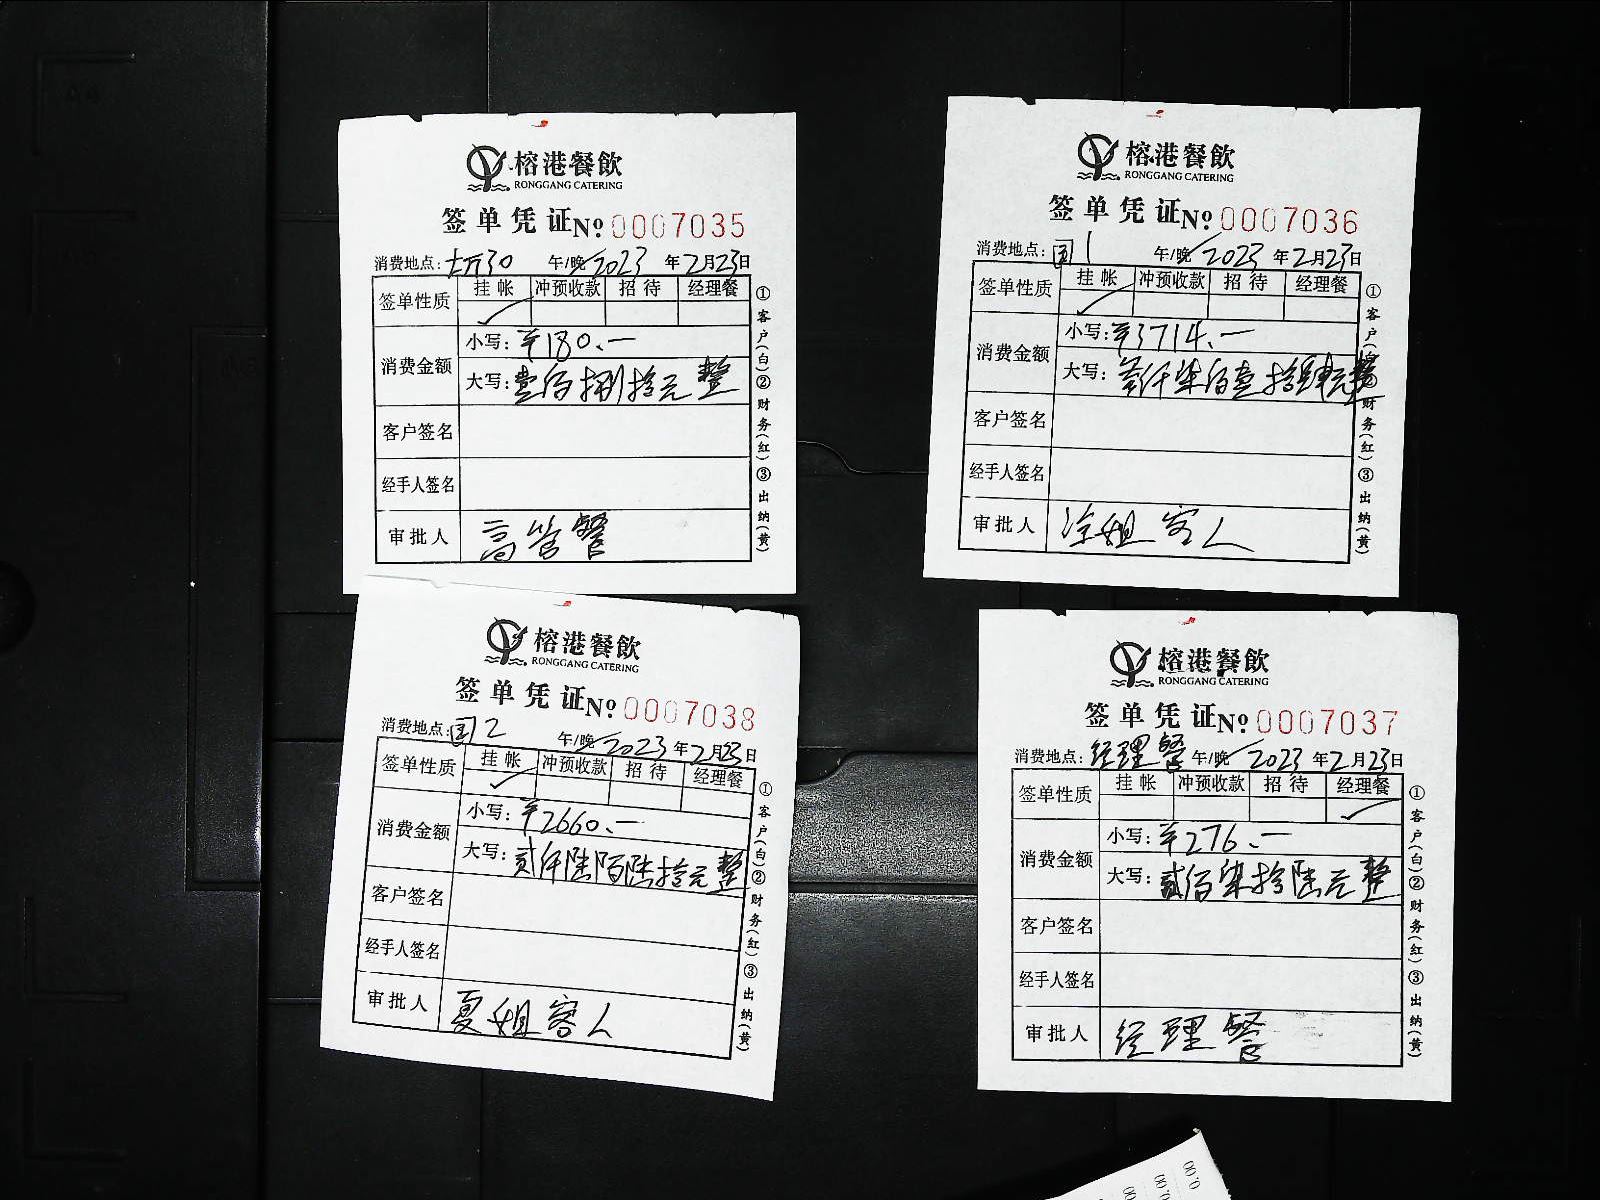 榕港餐飲
RONGGANG CATERING
签单凭证 No: 0007035
消费地点: 午/晚 2023 年 2 月 23 日
签单性质 挂帐 冲预收款 招待 经理餐
✓
消费金额 小写: ¥180.—
大写: 壹佰捌拾元整
客户签名
经手人签名
审批人 高管餐
①客户(白)②财务(红)③出纳(黄)
榕港餐飲
RONGGANG CATERING
签单凭证 No: 0007036
消费地点: 国1 午/晚 2023 年 2 月 23 日
签单性质 挂帐 冲预收款 招待 经理餐
✓
消费金额 小写: ¥3714.—
大写: 叁仟柒佰壹拾肆元整
客户签名
经手人签名
审批人 姐客人
①客户(白)②财务(红)③出纳(黄)
榕港餐飲
RONGGANG CATERING
签单凭证 No: 0007038
消费地点: 国2 午/晚 2023 年 2 月 23 日
签单性质 挂帐 冲预收款 招待 经理餐
✓
消费金额 小写: ¥2660.—
大写: 贰仟陆佰陆拾元整
客户签名
经手人签名
审批人 夏姐客人
①客户(白)②财务(红)③出纳(黄)
榕港餐飲
RONGGANG CATERING
签单凭证 No: 0007037
消费地点: 经理餐 午/晚 2023 年 2 月 23 日
签单性质 挂帐 冲预收款 招待 经理餐
✓
消费金额 小写: ¥276.—
大写: 贰佰柒拾陆元整
客户签名
经手人签名
审批人 经理餐
①客户(白)②财务(红)③出纳(黄)